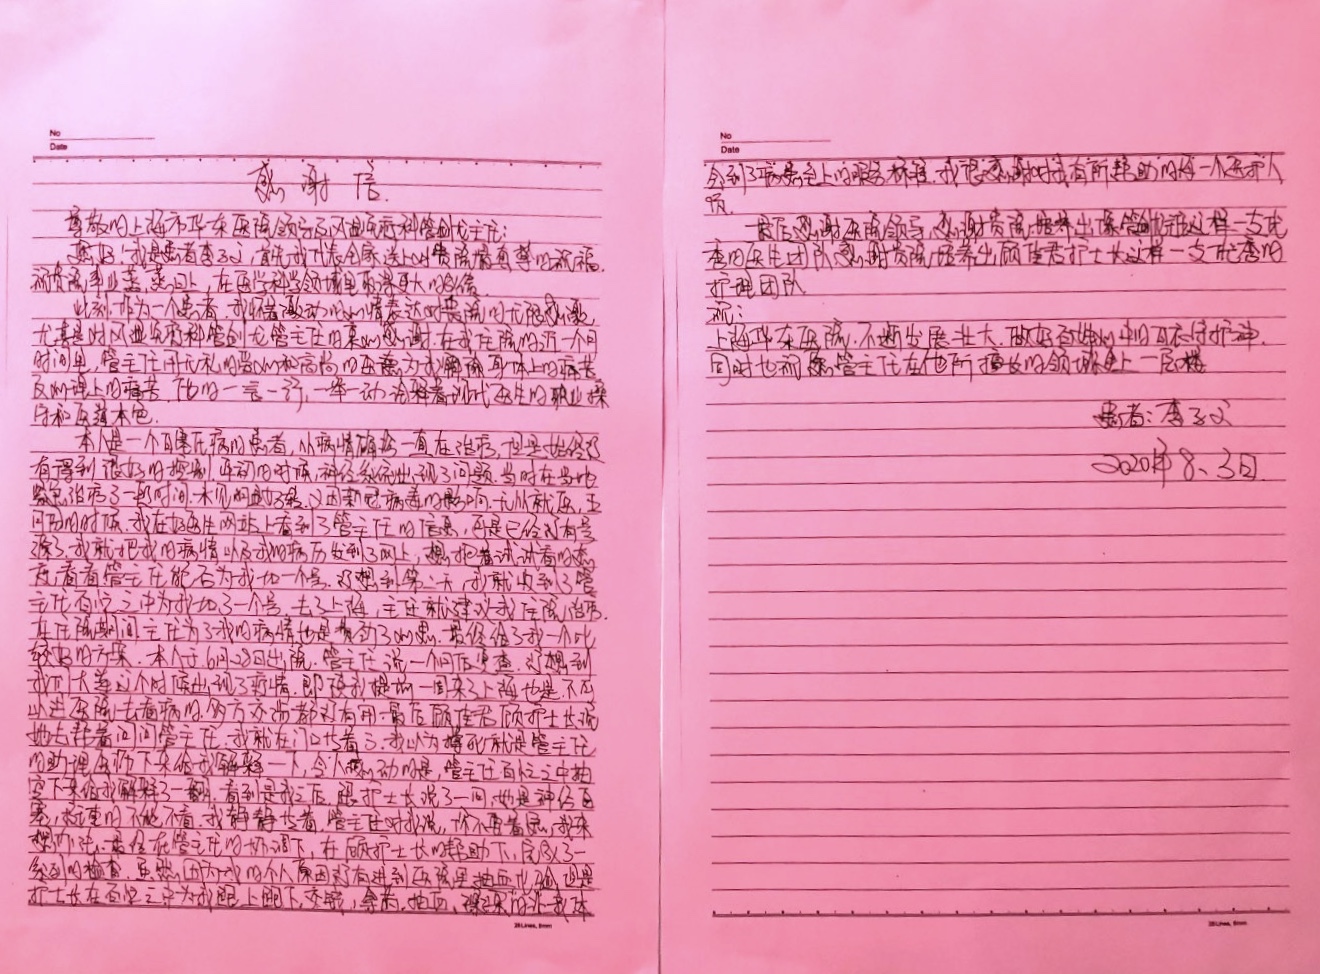 No
Date
感谢信
尊敬的上海市华东医院领导及风湿免疫科管剑龙主任:
您好!我是患者李 首先我代表全家送上对贵院最真挚的祝福,
祝贵院事业蒸蒸日上,在医学科学领域里取得更大的成绩
此刻,作为一个患者,我怀着激动的心情表达对贵院的无限感激,
尤其是对风湿免疫科管剑龙管主任的衷心感谢.在我住院的近一个月
时间里,管主任用无私的爱心和高尚的医德,为我解除身体上的病苦
及心理上的痛苦,他的一言一行,一举一动诠释着现代医生的职业操
守和医德本色.
本人是一个白塞氏病的患者,从病情确诊一直在治疗,但是始终没
有得到很好的控制 年初的时候,神经系统出现了问题.当时在当地
治疗了一段时间.未见明显好转.又因新冠病毒的影响.无从就医,五
月份的时候.我在好医生网站上看到了管主任的信息,可是已经没有号
源了.我就把我的病情以及我的病历发到了网上,想抱着试试看的态
度,看看管主任能否为我加一个号.没想到第二天,我就收到了管
主任百忙之中为我加了一个号.去了上海,主任就建议我住院治疗.
在住院期间主任为了我的病情也是费劲了心思.最终给了我一个比
较好的方案.本人于6月28日出院.管主任说一个月后复查.没想到
我们大连这个时候出现了疫情.即使我提前一周来了上海也是不可
以进医院去看病的.多方交涉都没有用.最后顾佳君顾护士长说
她去帮着问问管主任.我就在门口等着了.我以为撑死就是管主任
的助理医师下来给我解释一下,令人感动的是,管主任百忙之中抽
空下来给我解释了一翻.看到是我之后.跟护士长说了一句,她是神经白
塞,较重的不能不看.我静静等着,管主任对我说,你不要着急,我来
想办法.最终在管主任的协调下,在顾护士长的帮助下,完成了一
系列的检查.虽然因为我的个人原因没有进到医院里抽血化验,但是
护士长在百忙之中为我跑上跑下,交钱,拿药,抽血,
28 Lines, 8mm
No
Date
会到了 上的服务标准.我很感谢对我有所帮助的每一个医护人
员.
最后感谢医院领导,感谢贵院培养出像管剑龙主任这样一支优
秀的医生团队 感谢贵院培养出顾佳君护士长这样一支优秀的
护理团队
祝:
上海华东医院,不断发展壮大.做好百姓心中的白衣守护神.
同时也祝愿管主任在他所擅长的领域更上一层楼.
患者:李
2020年8.3日.
28 Lines, 8mm